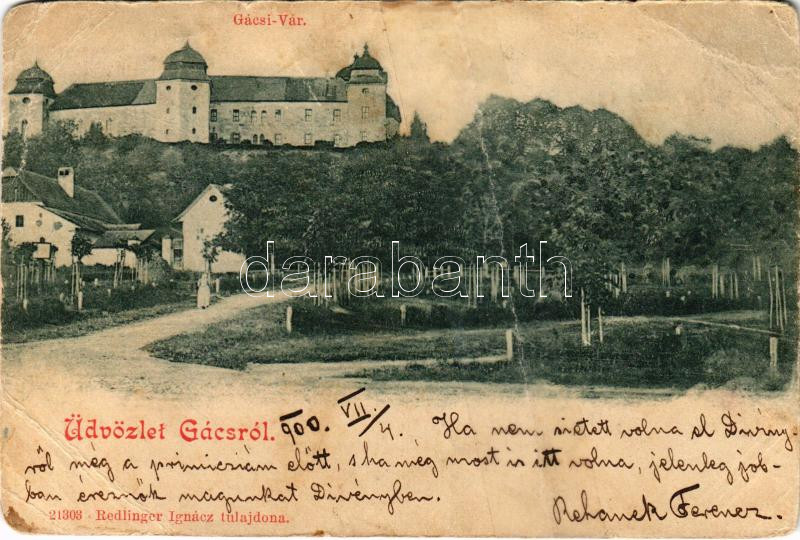 Gácsi-Vár.
darabanth
Üdvözlet Gácsról. 900. VII/4. Ha nem sietett volna el Divény-
ről még a primicziám előtt, s ha még most is itt volna, jelenleg job-
ban éreznők magunkat Divényben.
21303 Redlinger Ignácz tulajdona.
Rehanek Ferencz.